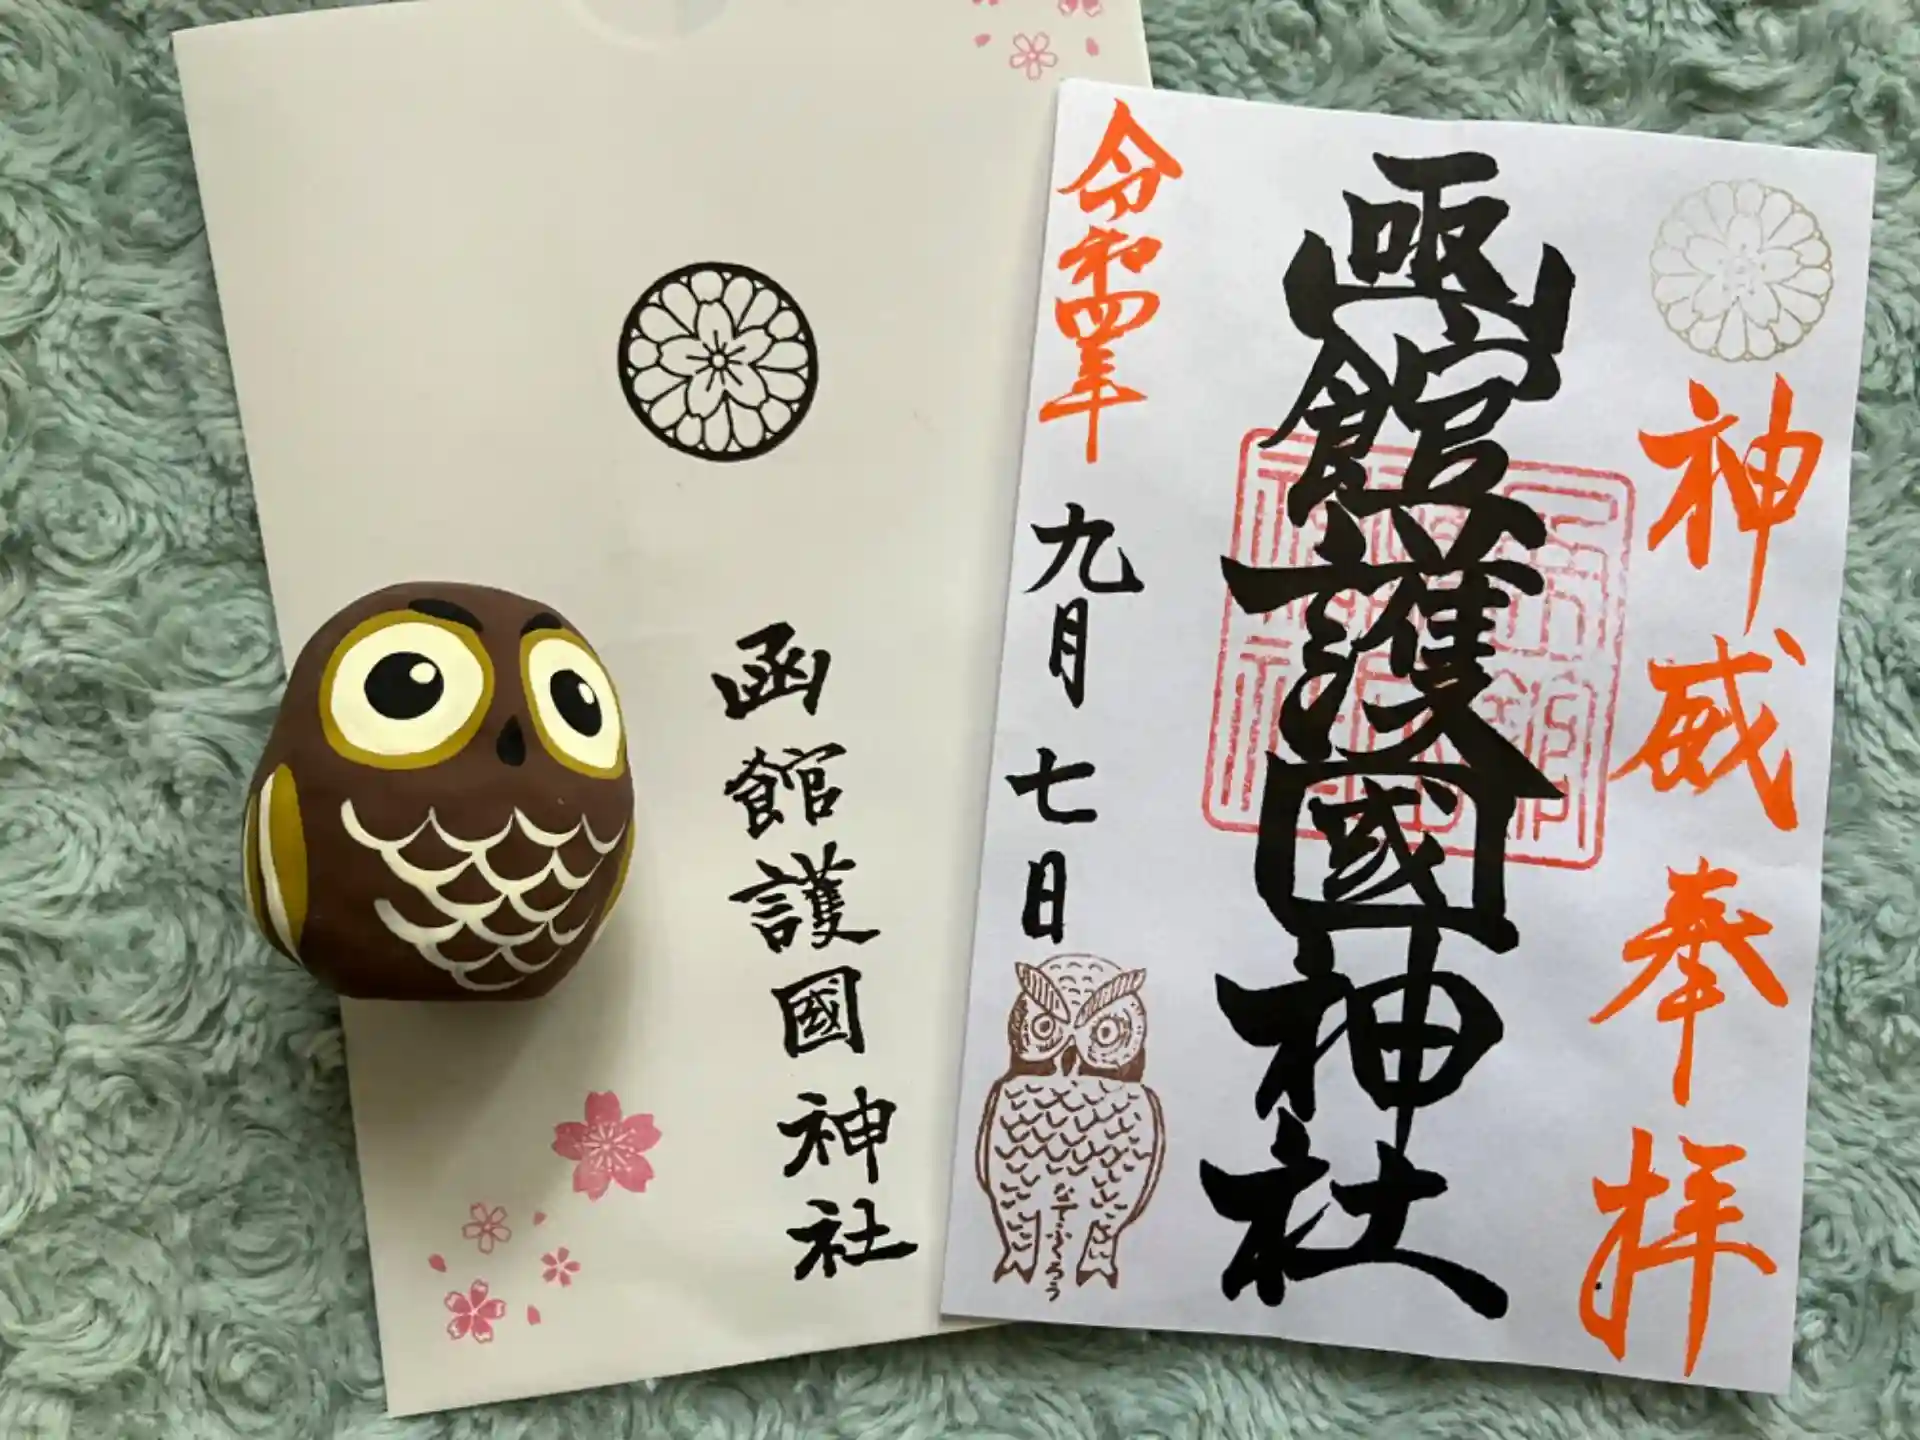 函館護國神社
神威奉拝
函館護國神社
令和四年九月七日
なでふくろう